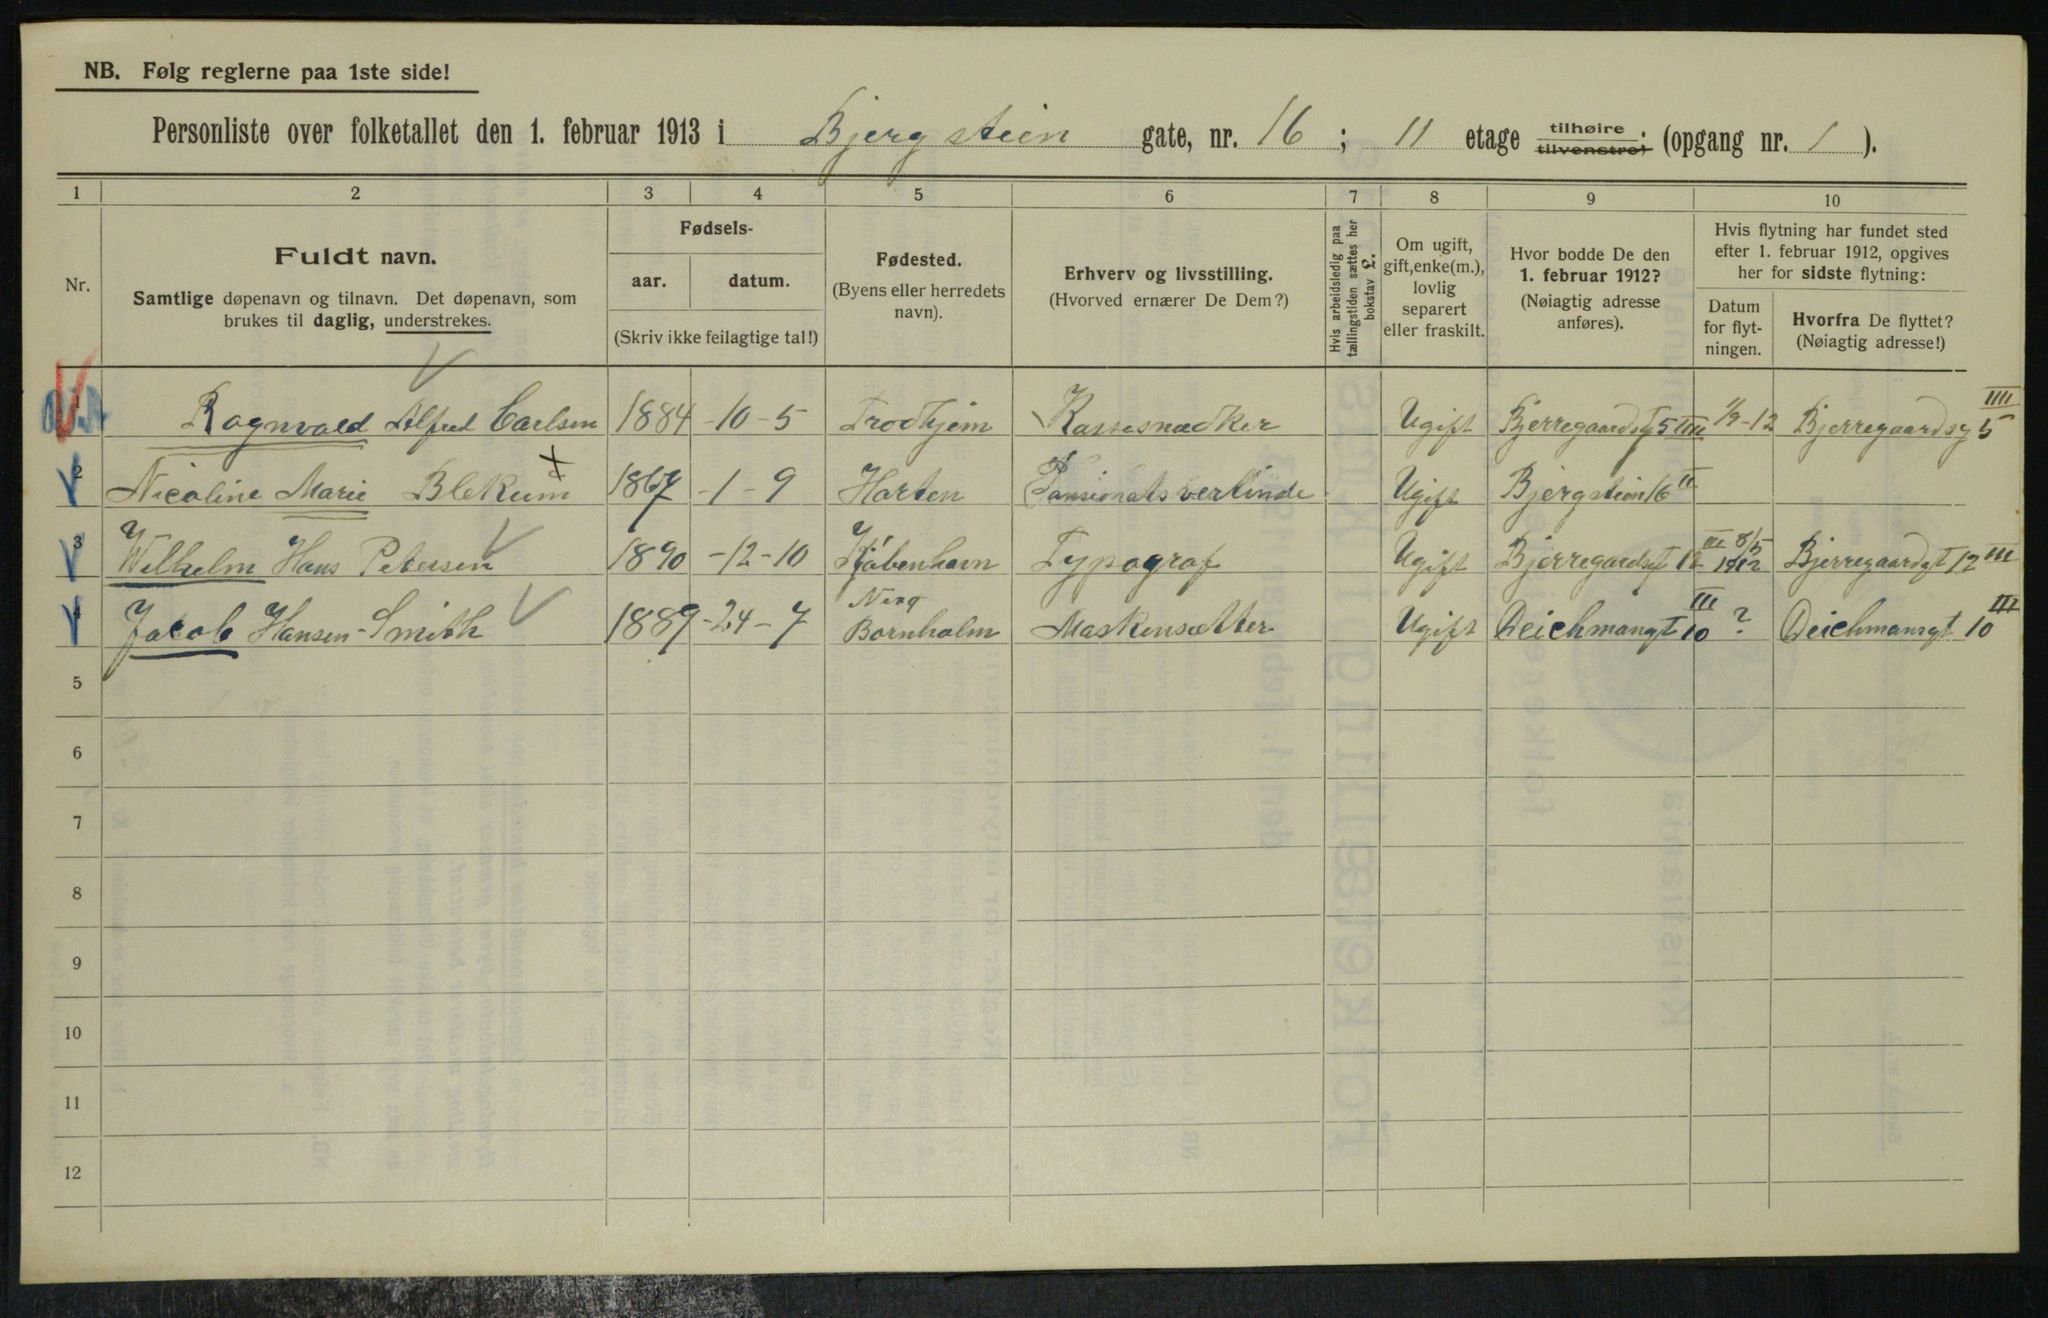 NB. Følg reglerne paa 1ste side!
Personliste over folketallet den 1. februar 1913 i Bjergstien gate, nr. 16 ; 11 etage tilhøire tilvenstre; (opgang nr. 1 ).
1 2 3 4 5 6 7 8 9 10
Nr.
Fuldt navn.
Samtlige døpenavn og tilnavn. Det døpenavn, som
brukes til daglig, understrekes.
Fødsels-
aar. datum.
(Skriv ikke feilagtige tal!)
Fødested.
(Byens eller herredets
navn).
Erhverv og livsstilling.
(Hvorved ernærer De Dem?)
Hvis arbeidsledig paa
tællingstiden sættes her
bokstav £.
Om ugift,
gift, enke(m.),
lovlig
separert
eller fraskilt.
Hvor bodde De den
1. februar 1912?
(Nøiagtig adresse
anføres).
Hvis flytning har fundet sted
efter 1. februar 1912, opgives
her for sidste flytning:
Datum
for flyt-
ningen.
Hvorfra De flyttet?
(Nøiagtig adresse!)
1 Ragnvald Alfred Carlsen 1884 -10-5 Trodhjem Kassesnedker Ugift Bjerregaardsg 5 IIII 1/9-12 Bjerregaardsg 5 IIII
2 Nicoline Marie Blekum 1867 -1-9 Horten Pansionatsvertinde Ugift Bjergstien 16 II
3 Wilhelm Hans Petersen 1890 -12-10 København Typograf Ugift Bjerregaardsgt 12 III 8/5 1912 Bjerregaardgt 12 III
4 Jacob Hansen-Smith 1889 -24-7 Nexø Bornholm Maskensætter Ugift Deichmangt 10 III ? Deichmansgt 10 III
5
6
7
8
9
10
11
12